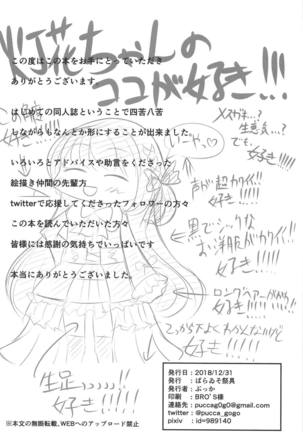 花ちゃんの
ココが好き!!!
この度はこの本をお手にとっていただき
ありがとうございます
はじめての同人誌ということで四苦八苦
しながらもなんとか形にすることが出来ました。
いろいろとアドバイスや助言をくださった
絵描き仲間の先輩方
twitterで応援してくださったフォロワーの方々
この本を読んでいただいた方々
皆様には感謝の気持ちでいっぱいです
本当にありがとうございました。
メスガキ…?
生意気…?
でも、
好き!!!
声が超カワイイ
好き!!!!
黒でシックな
お洋服がカワイイ!
好き!!!!!
ロングヘアー
好き!!!!
生足……
好き!!!!
発行日：2018/12/31
発行：ばらゐゑ祭具
発行者：ぷっか
印刷：BRO'S様
連絡先：puccag0g0@gmail.com
twitter：@pucca_gogo
pixiv：id=989140
※本文の無断転載、WEBへのアップロード禁止